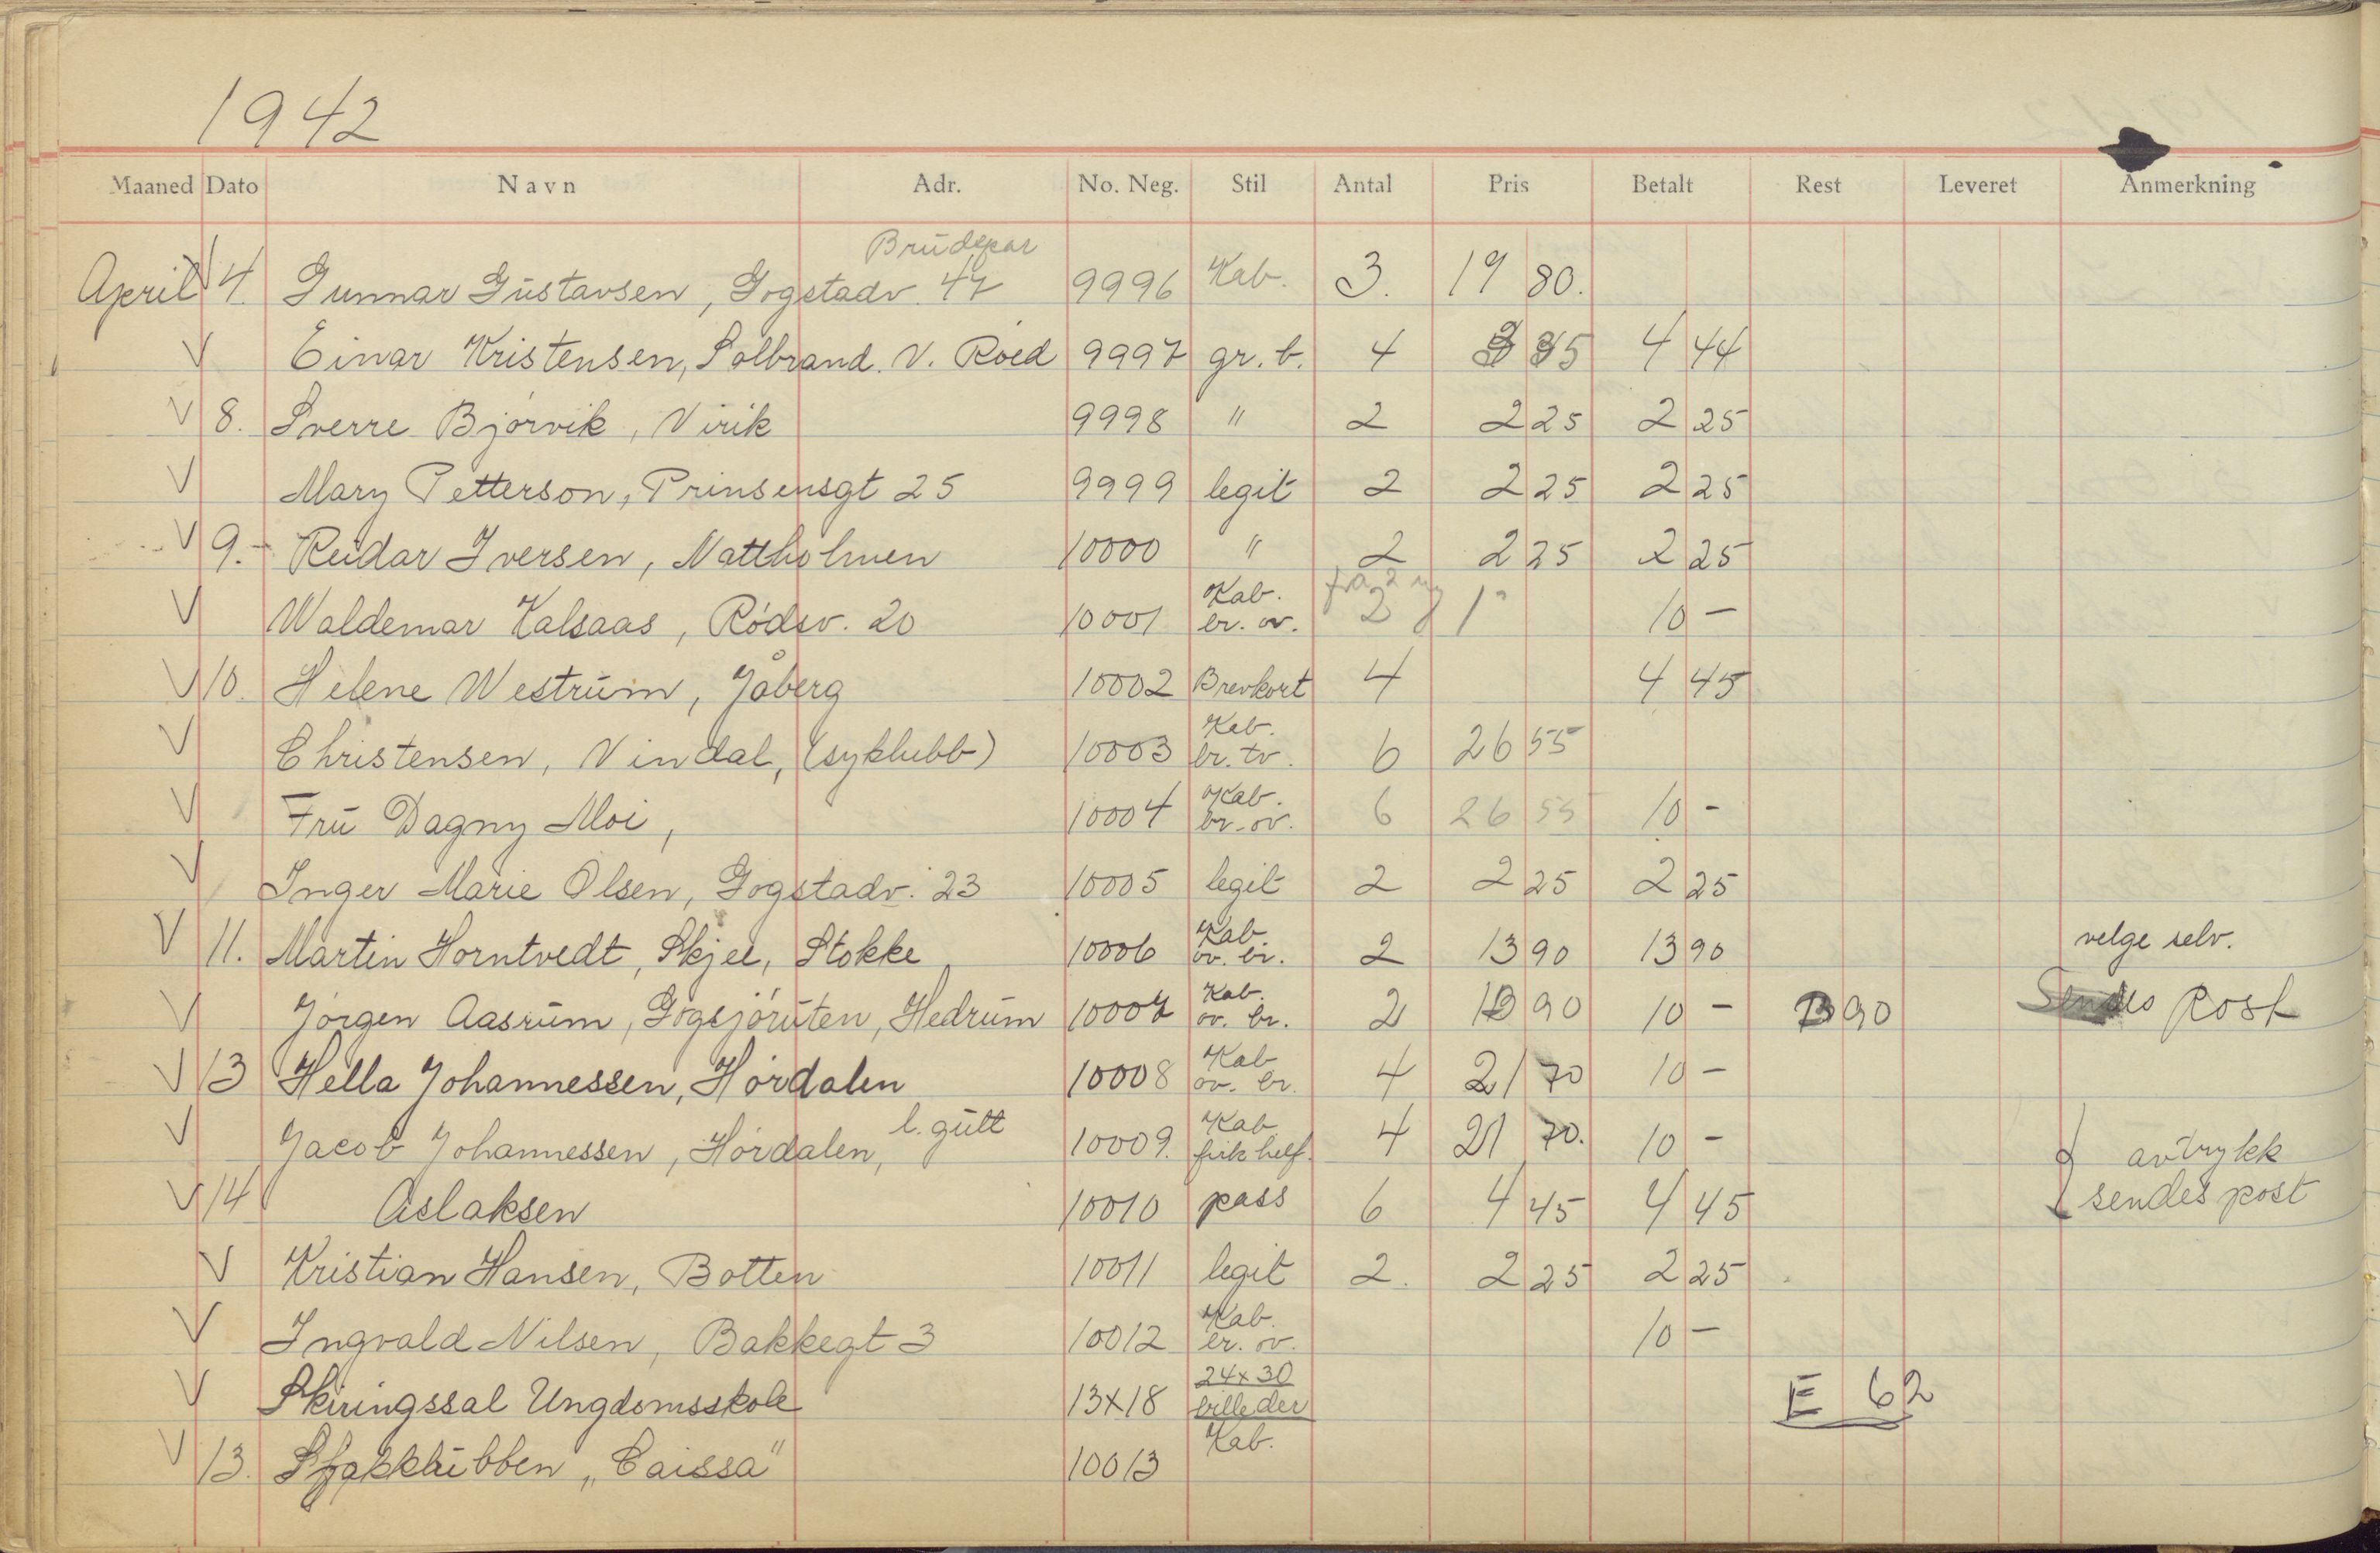 1942
Maaned Dato Navn Adr. No. Neg. Stil Antal Pris Betalt Rest Leveret Anmerkning
Brudepar
April V 4. Gunnar Gustavsen, Gogstadv. 47 9996 Kab. 3. 19 80.
V Einar Kristensen, Solbrand. V. Roed 9997 gr. b. 4 4 44
V 8. Sverre Bjørvik, Virik 9998 " 2 2 25 2 25
V Mary Petterson, Prinsensgt 25 9999 legit 2 2 25 2 25
V 9. - Reidar Iversen, Nattholmen 10000 " 2 2 25 2 25
Kab.
V Waldemar Kalsaas, Rödsv. 20 10001 br. ov. 2 10 -
V 10. Helene Westrum, Jåberg 10002 Brevkort 4 4 45
Kab.
V Christensen, Vindal, (syklubb) 10003 br. tv. 6 26 55
Kab.
V Fru Dagny Moi, 10004 br. ov. 6 26 55 10 -
V Inger Marie Olsen, Gogstadv. 23 10005 legit 2 2 25 2 25
Kab. velge selv.
V 11. Martin Horntvedt, Skjee, Stokke 10006 ov. br. 2 13 90 13 90
Kab.
V Jörgen Aasrum, Gogsjøruten, Hedrum 10007 ov. br. 2 13 90 10 - 3 90 Sendes Post
Kab
V 13 Hella Johannessen, Hördalen 10008 ov. br. 4 21 70 10 -
l. gutt Kab
V Jacob Johannessen, Hördalen, 10009. 4 21 70. 10 - avtrykk
V 14 Aslaksen 10010 pass 6 4 45 4 45 sendes post
V Kristian Hansen, Botten 10011 legit 2. 2 25 2 25
Kab.
V Ingvald Nilsen, Bakkegt 3 10012 br. ov. 10 -
24x30
V Skiringssal Ungdomsskole 13x18 billeder E 62
Kab.
V 13. Sjakklubben „Caissa" 10013